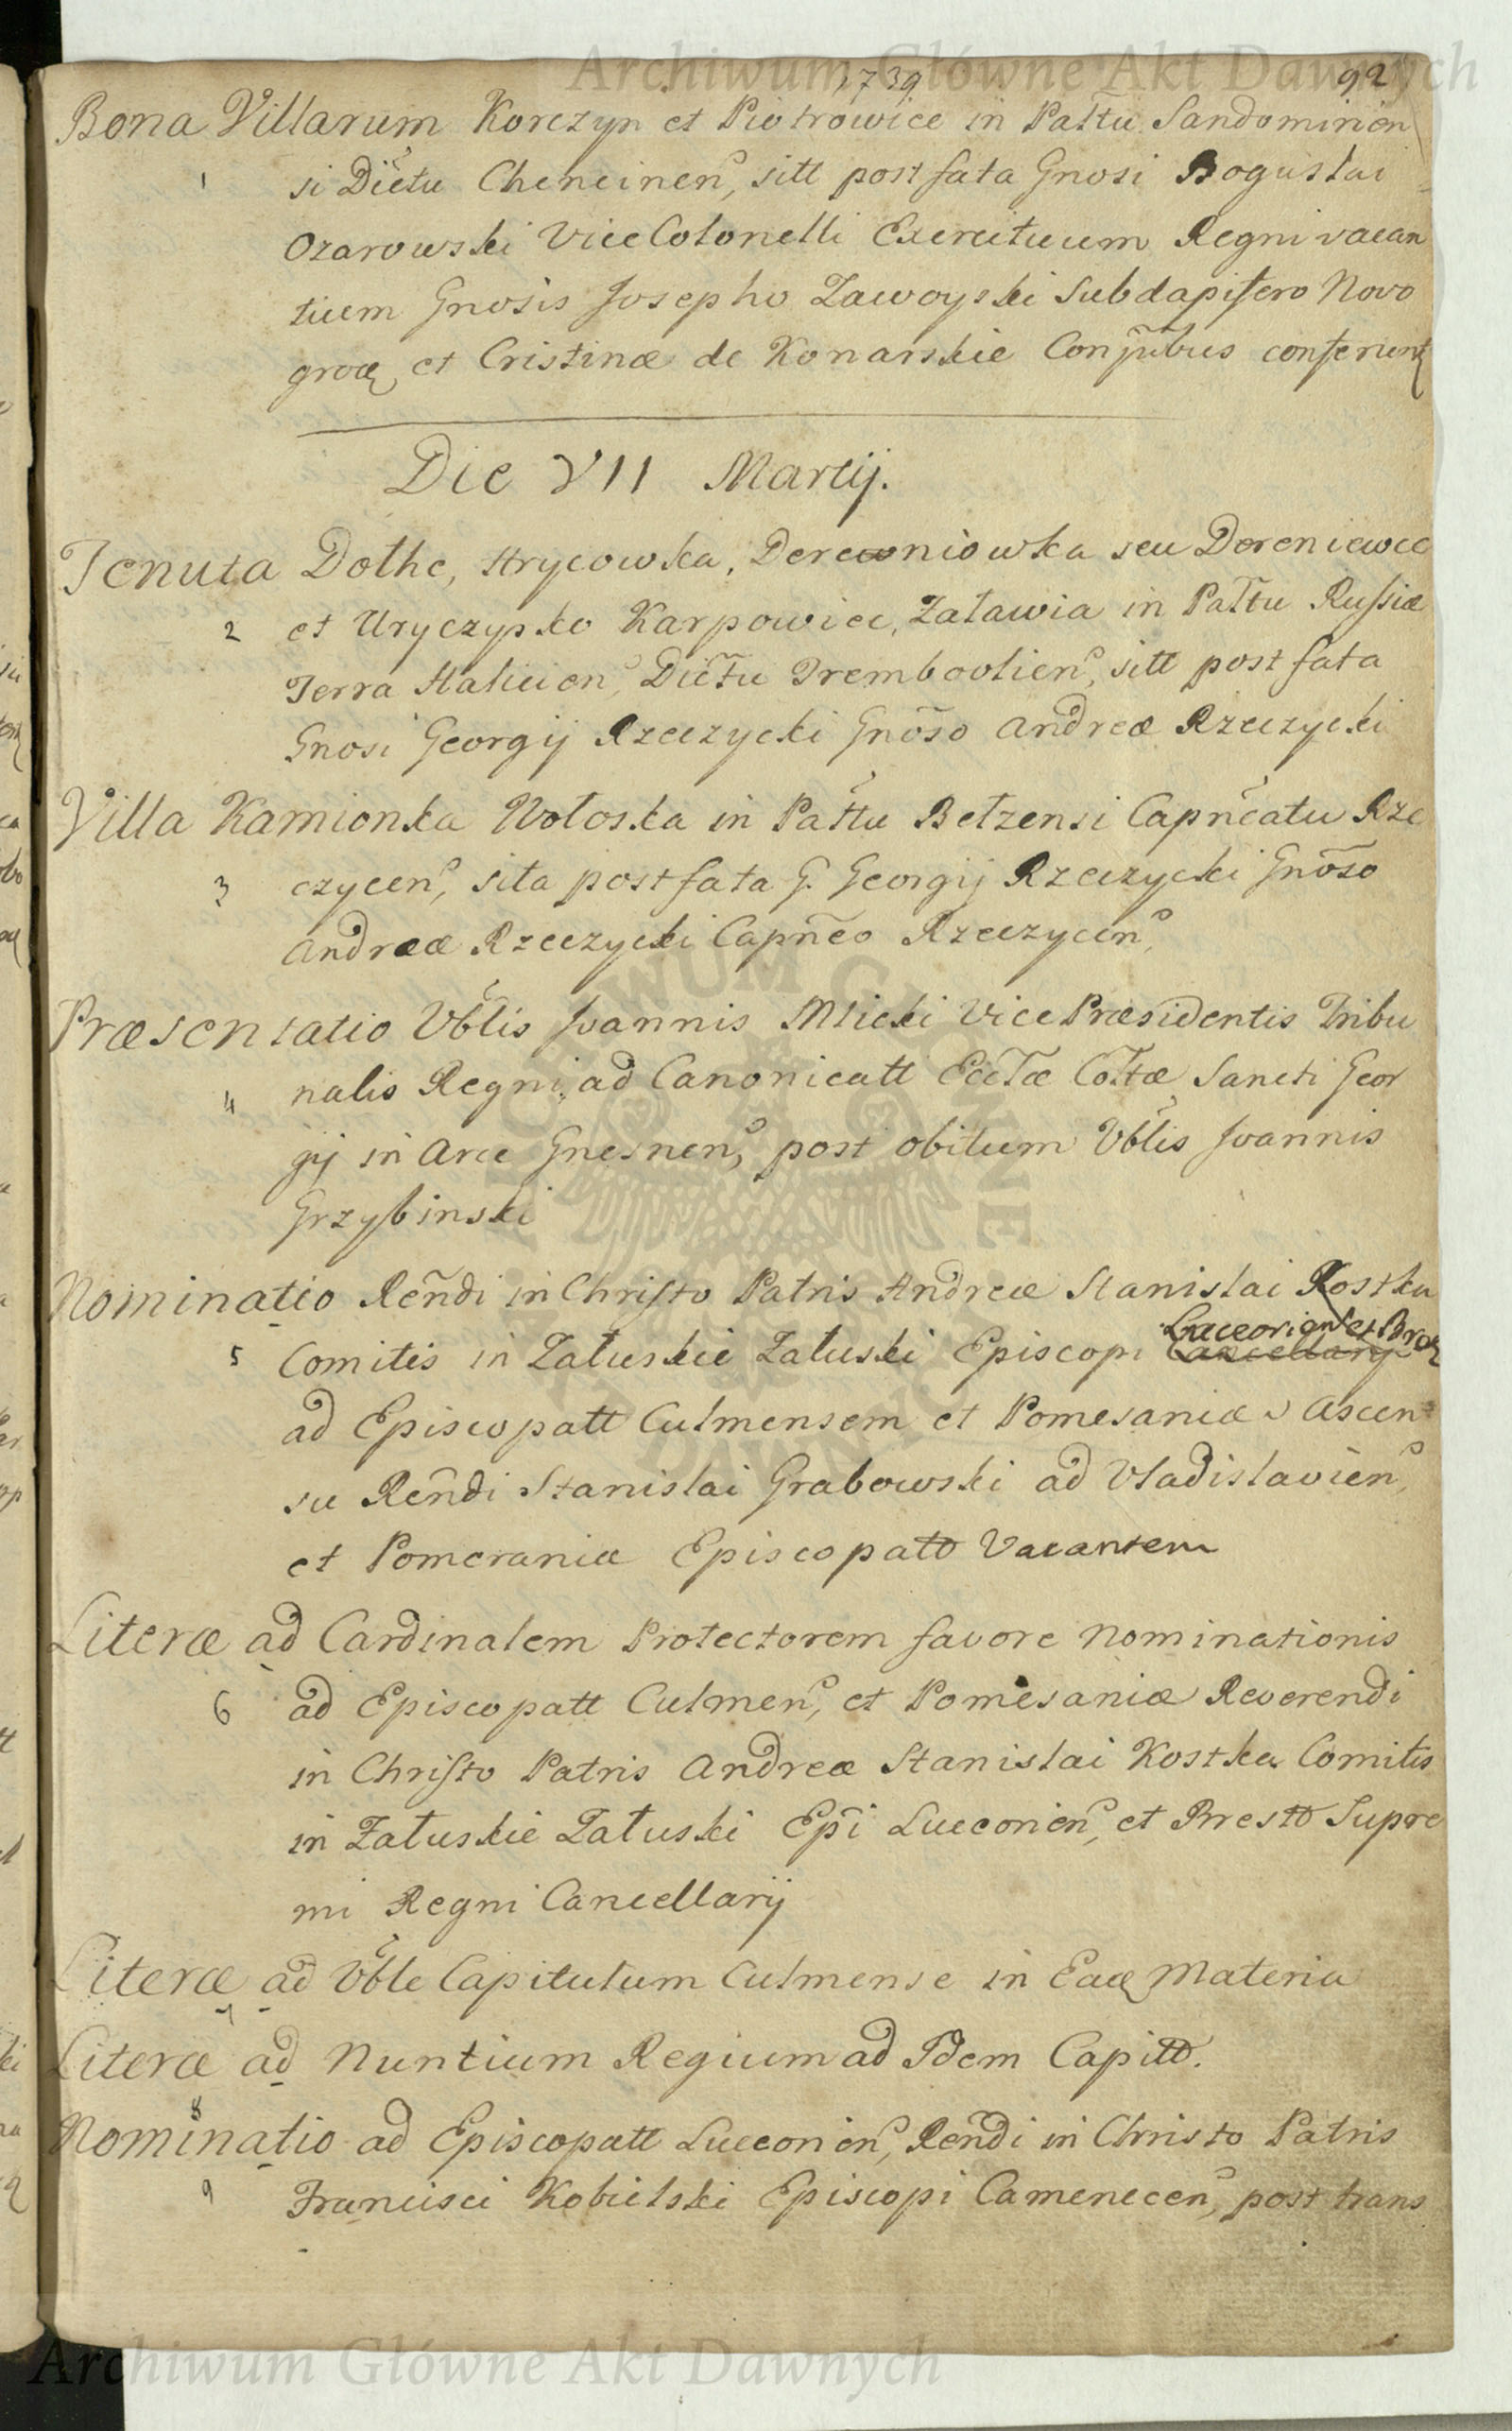 Archiwum Główne Akt Dawnych
1739 92
Bona Villarum Korczyn et Piotrowice in Pałtu Sandomirien
1 si Diẽtu Chencinen, sitt post fata Gnosi Boguslai
Ozarowski ViceColonelli Exercituum Regni vacan
tium Gnosis Josepho Zawoyski Subdapifero Novo
grod, et Cristinæ de Konarskie Conjũbus conferunt
Die VII Martij.
Tenuta Dołhe, Hrycowka, Derewniowka seu Dereniewce
2 et Uryczysko Karpowice, Załawia in Pałtu Russiæ
Terra Halicien, Diẽtu Trembovlien, sitt post fata
Gnosi Georgij Rzeczycki Gnõso Andreæ Rzeczycki
Villa Kamionka Wołoska in Pałtu Bełzensi Capñeatu Rze
3 czycen, sita post fata G. Georgij Rzeczycki Gnõso
Andreæ Rzeczycki Capñeo Rzeczycen,
Præsentatio Vblis Joannis Mlicki VicePræsidentis Tribu
4 nalis Regni, ad Canonicatt Eccłæ Colłæ Sancti Geor
gij in Arce Gnesnen, post obitum Vblis Joannis
Grzybinski
Nominatio Reñdi in Christo Patris Andreæ Stanislai Kostka
Luceorien et Brest
5 Comitis in Załuskie Załuski Episcopi Cancellarij
ad Episcopatt Culmensem et Pomesaniæ Ascen
su Reñdi Stanislai Grabowski ad Vladislavien,
et Pomeraniæ Episcopatt Vacantem
Literæ ad Cardinalem Protectorem favore nominationis
6 ad Episcopatt Culmen, et Pomesaniæ Reverendi
in Christo Patris Andreæ Stanislai Kostka Comitis
in Załuskie Załuski Epĩ Lucconien, et Brestt Supre
mi Regni Cancellarij
Literæ ad Vble Capitulum Culmense in Eadem Materia
7
Literæ ad Nuntium Regium ad Idem Capitt.
8
Nominatio ad Episcopatt Lucconien, Reñdi in Christo Patris
9 Francisci Kobielski Episcopi Camenecen, post trans
Archiwum Główne Akt Dawnych